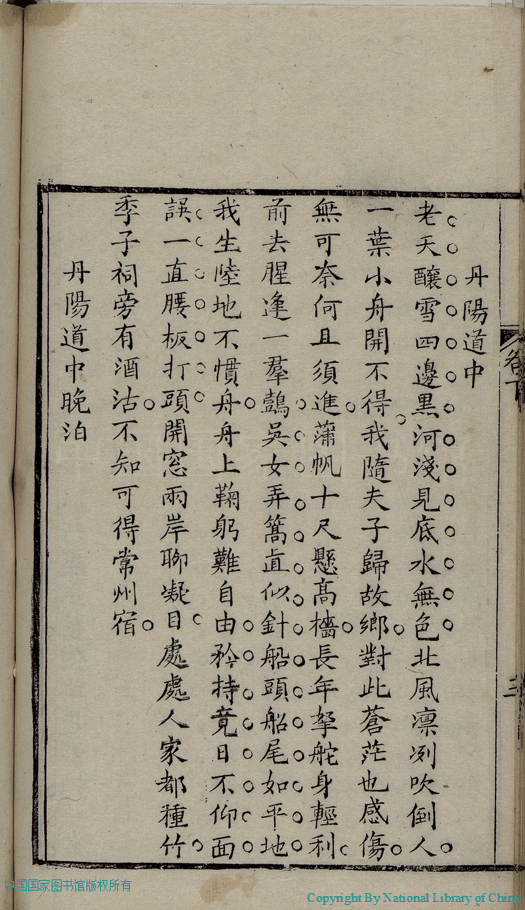 丹陽道中
老天釀雪四邊黒河淺見底水無色北風凛冽吹倒人
一葉小舟開不得我隨夫子歸故鄉對此蒼茫也感傷
無可奈何且須進蒲帆十尺懸高檣長年拏舵身輕利
前去腥逢一羣鷀吳女弄篙直似針船頭船尾如平地
我生陸地不慣舟舟上鞠躬難自由矜持竟日不仰面
誤一直腰板打頭開窓兩岸聊凝目處處人家都種竹
季子祠旁有酒沽不知可得常州宿
丹陽道中晚泊
卷下
三
中国国家图书馆版权所有
Copyright By National Library of China